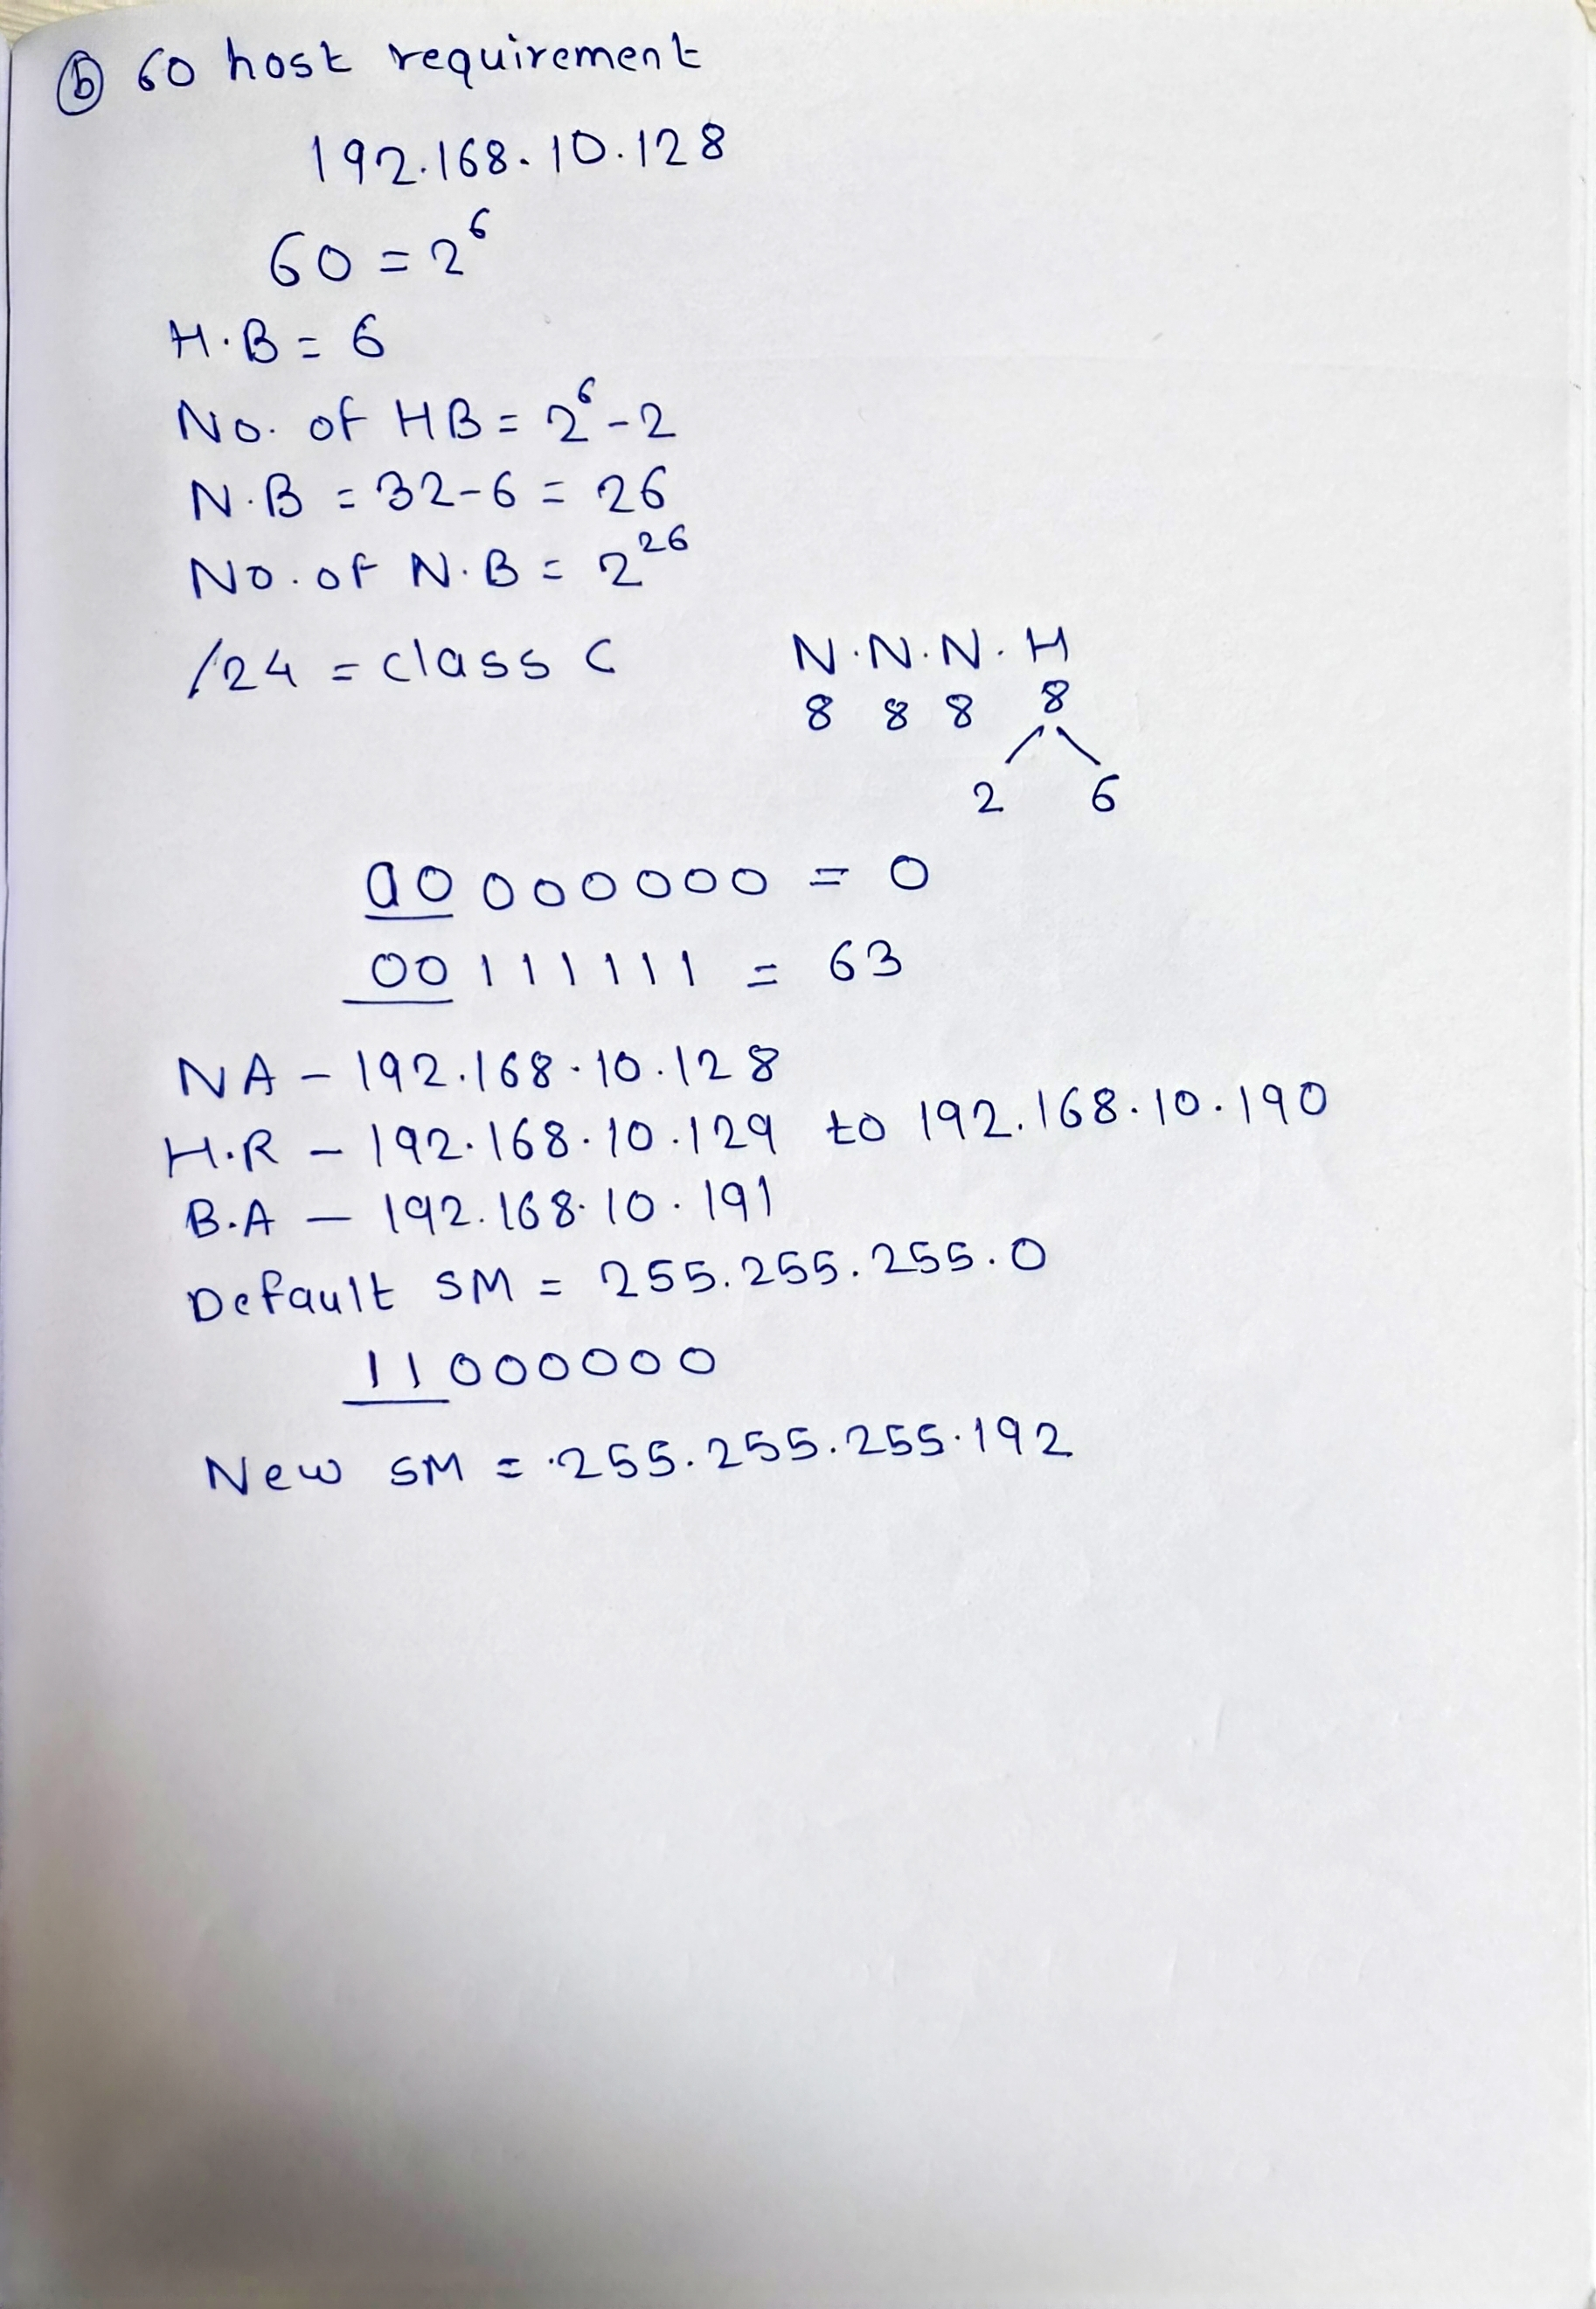 ⓑ 60 host requirement
192.168.10.128
60 = 2⁶
H.B = 6
No. of HB = 2⁶-2
N.B = 32-6 = 26
No. of N.B = 2²⁶
/24 = class C
N.N.N.H
8 8 8 8
2 6
00 000000 = 0
00 111111 = 63
NA - 192.168.10.128
H.R - 192.168.10.129 to 192.168.10.190
B.A - 192.168.10.191
Default SM = 255.255.255.0
11000000
New SM = .255.255.255.192